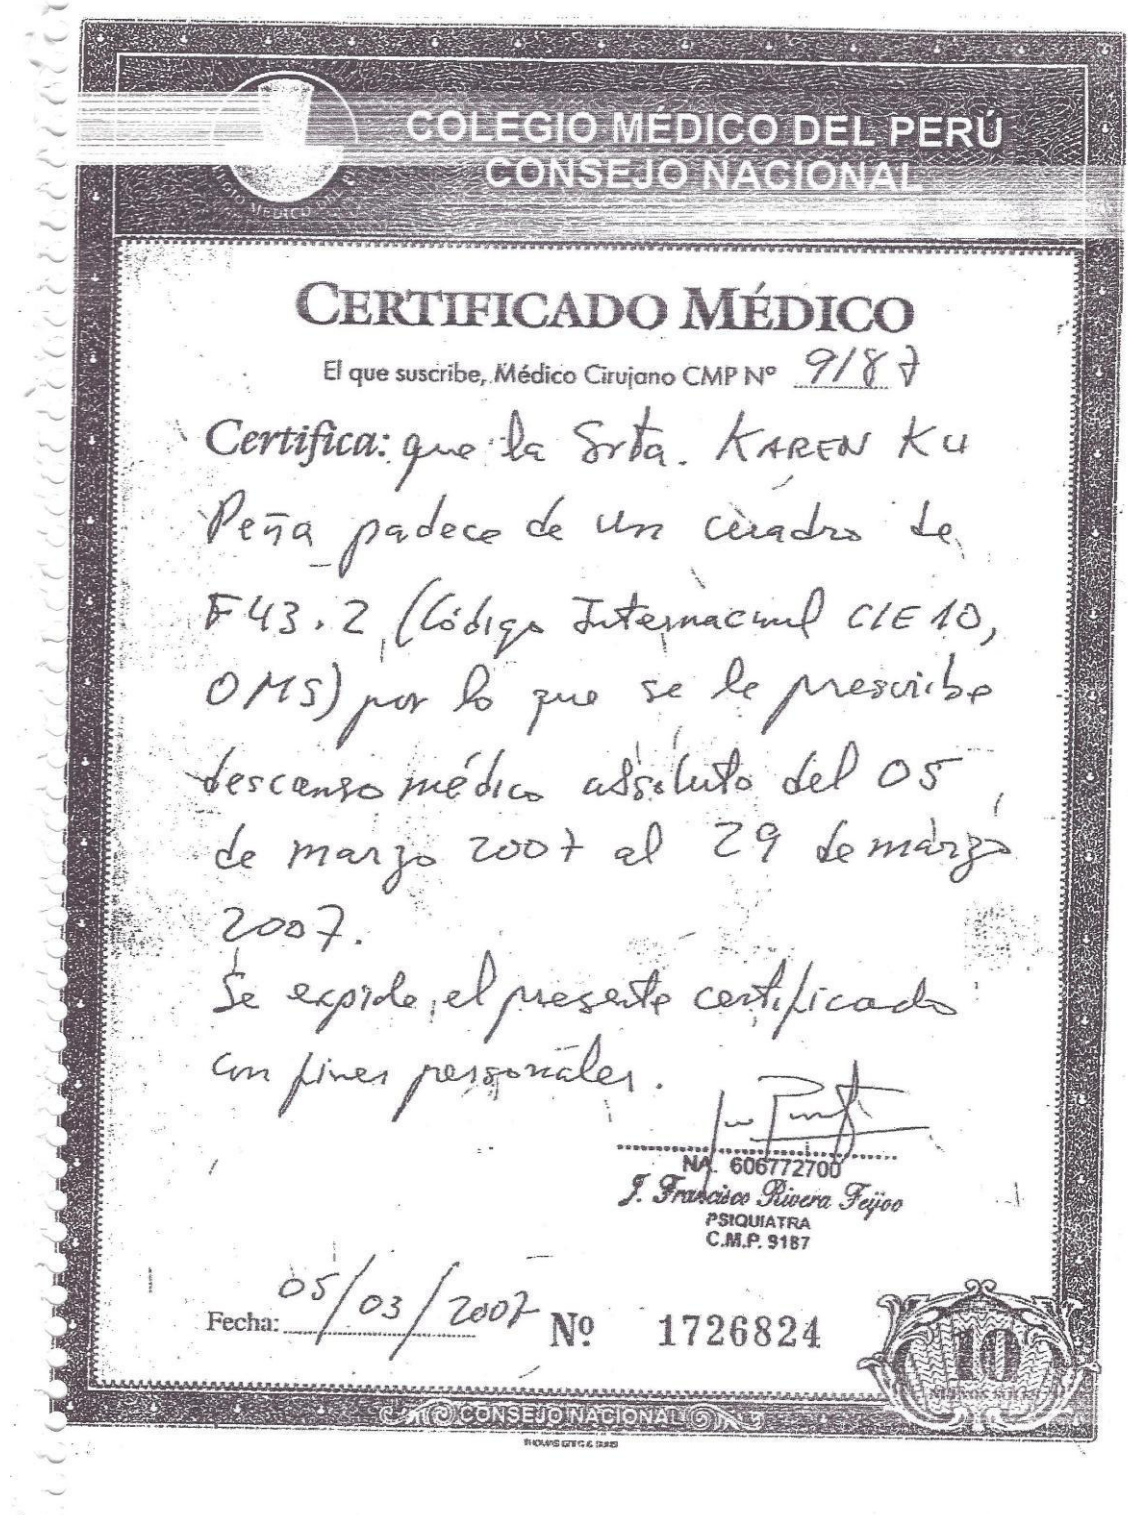 COLEGIO MÉDICO DEL PERÚ
CONSEJO NACIONAL
CERTIFICADO MÉDICO
El que suscribe, Médico Cirujano CMP Nº 9187
Certifica: que la Srta. KAREN KU
Peña padece de un cuadro de
F43.2 (Código Internacional CIE 10,
OMS) por lo que se le prescribe
descanso médico absoluto del 05
de marzo 2007 al 29 de marzo
2007.
Se expide el presente certificado
con fines personales.
NA. 606772700
J. Francisco Rivera Feijoo
PSIQUIATRA
C.M.P. 9187
Fecha: 05/03/2007 Nº 1726824
10
CONSEJO NACIONAL